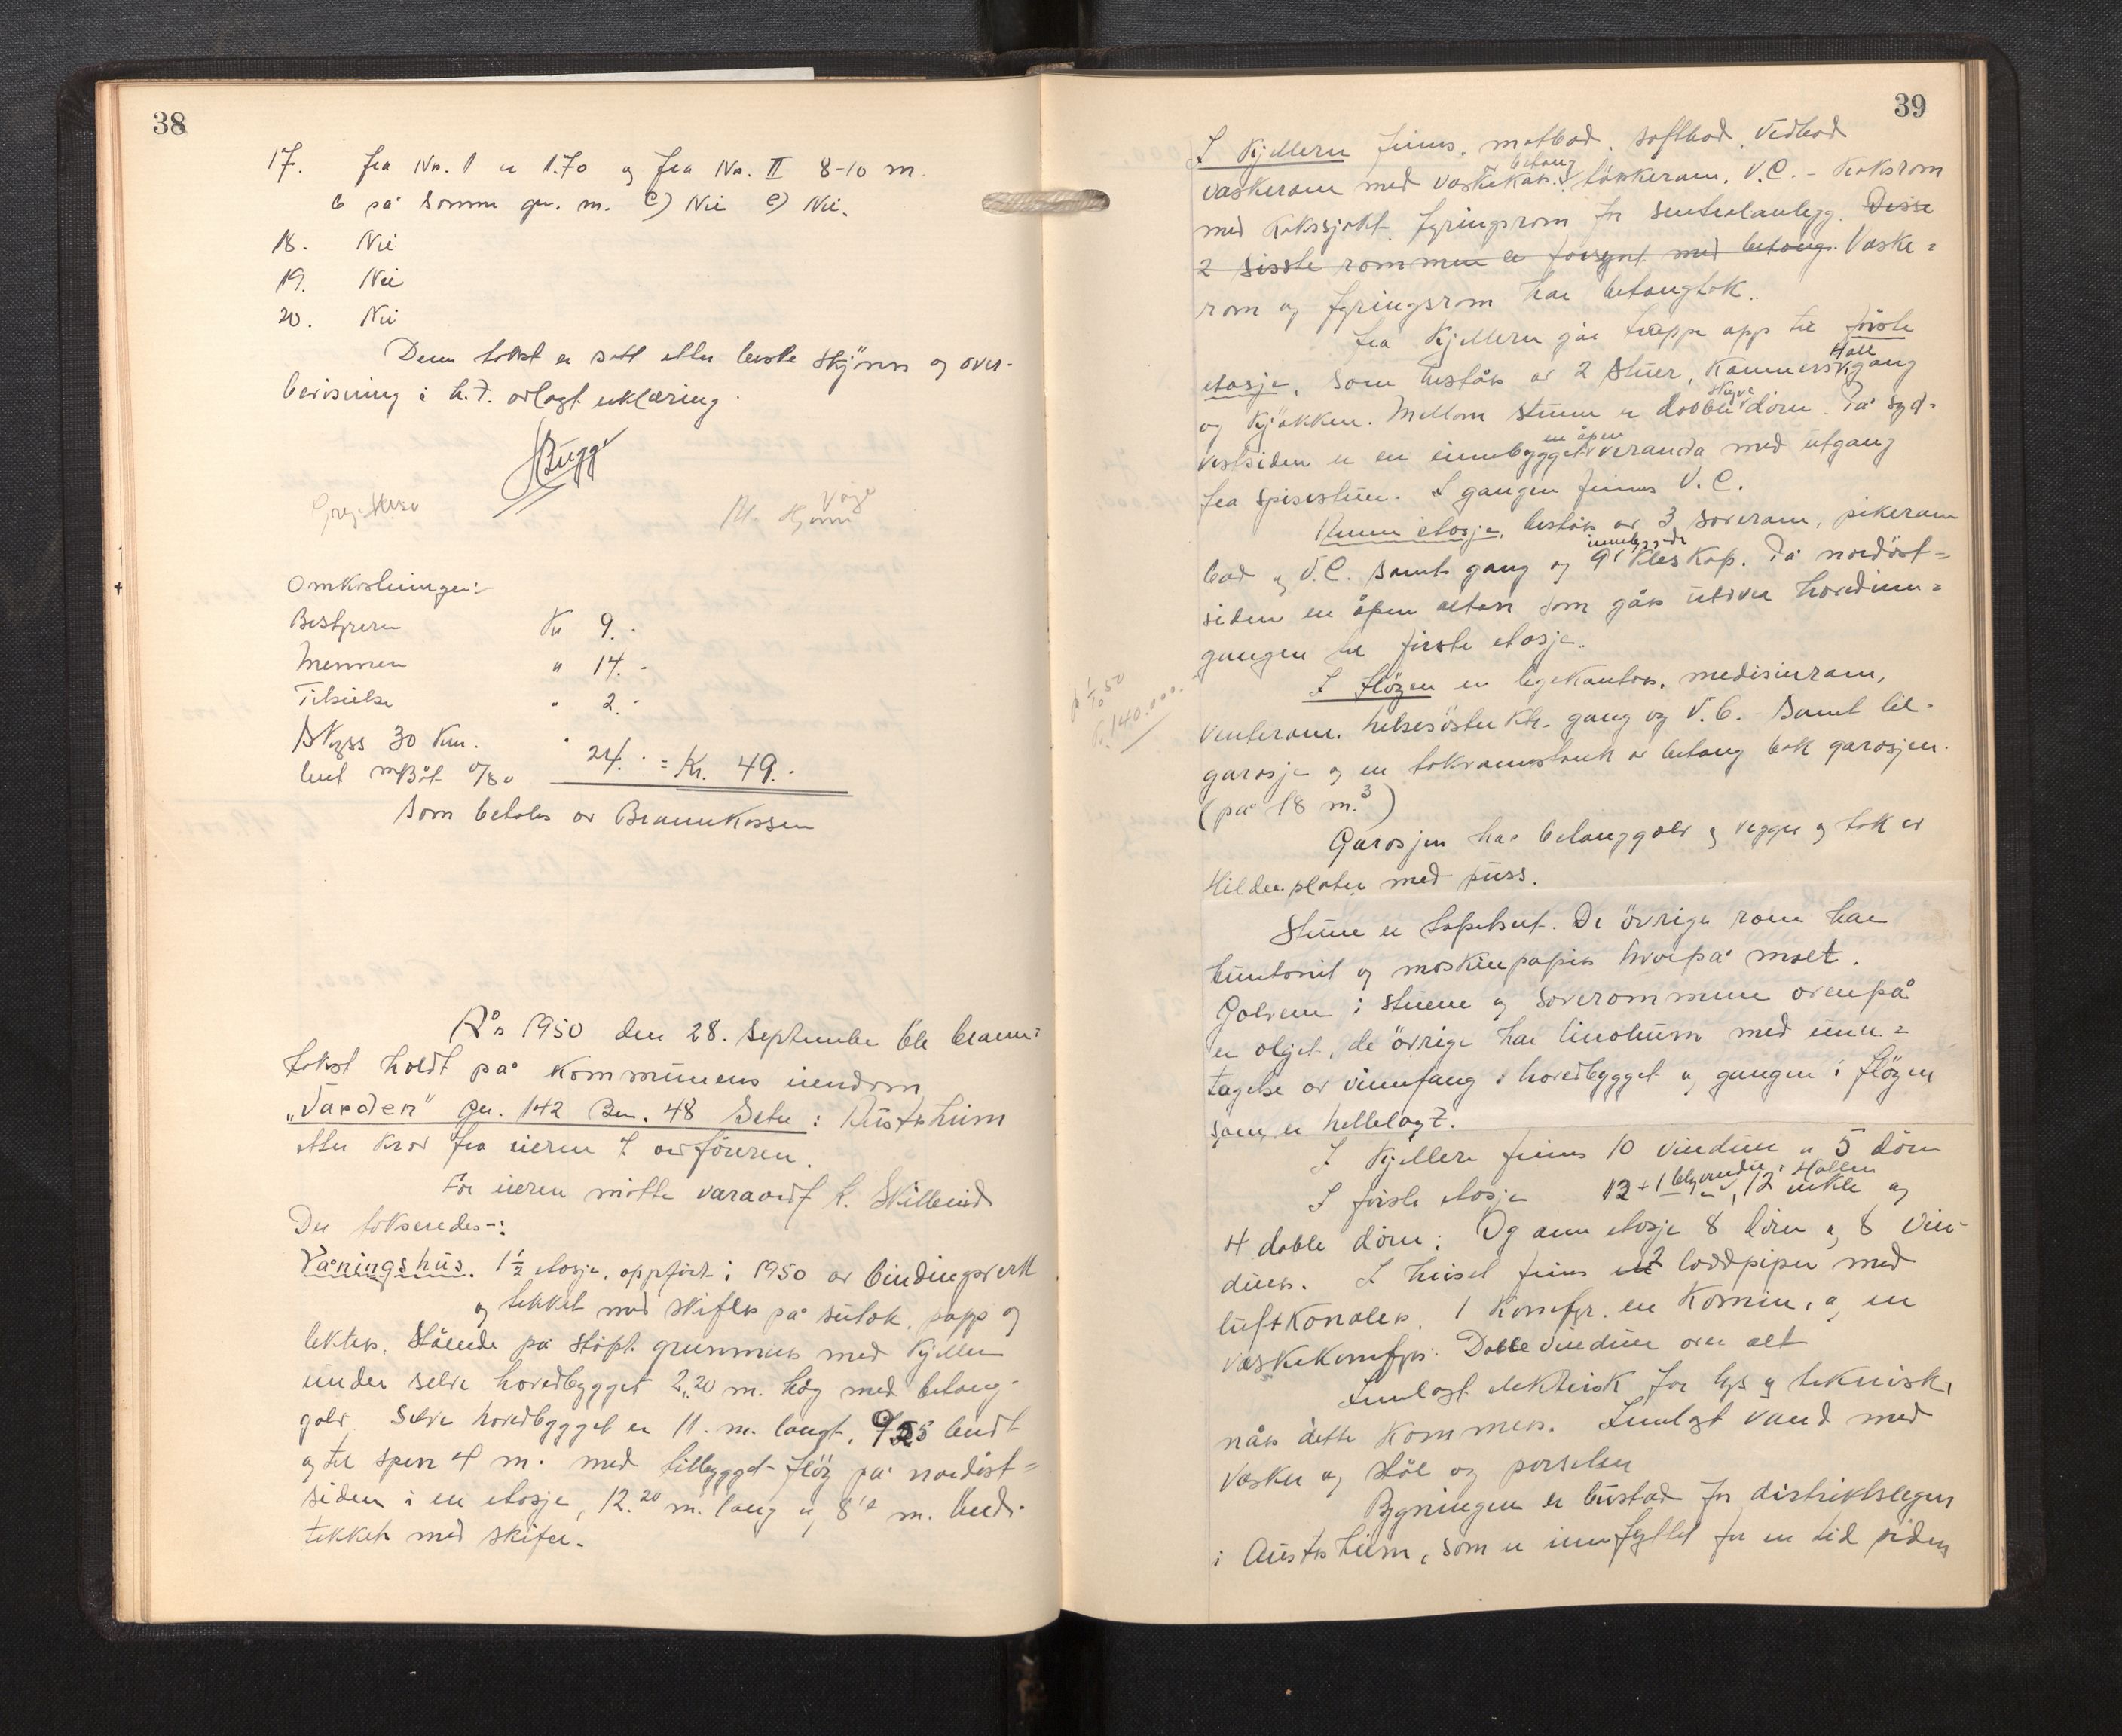 38
17. fra No. 1 er 1.70 og fra No. II 8-10 m.
b på somme gr. m. c) Nei e) Nei.
18. Nei
19. Nei
20. Nei
Denne takst er satt etter beste skjönn og over-
bevisning i h.t. avlagt erklæring.
Omkostninger:
Bestyreren Kr 9.-
Mennene " 14.-
Tilsielse " 2.-
Skyss 30 Km.
24.- = Kr. 49.-
Som betales av Brannkassen
År 1950 den 28. September ble brann=
takst holdt på Kommunens eiendom
"Varden" gn. 142 Bn. 48 Sæter: Austrheim
etter krav fra eieren v ordföreren.
For eieren mötte varaordf
Der takseredes-:
Våningshus. 1½ etasje, oppfört i 1950 av bindingsverk
og tekket med skifer på sutak, papp og
lekter. Stående på stöpt grunnmur med kjeller
under selve hovedbygget 2,20 m. høg med betong-
golv. Selve hovedbygget er 11. m. langt, 9,25 bredt
og til sperr 4 m. med tilbygget flöy på nordöst=
siden i en etasje, 12.20 m. lang og m. bred.
tekket med skifer.
39
I Kjelleren finns. matbod. saftbod. vedbod
vaskerom med vaskekar. betong törkerom, V.C. - Koksrom
med kokssjakt. fyringsrom for sentralanlegg. Disse
2 siste rommene er forsynt med betong. Vaske=
rom og fyringsrom har betongtak.
fra Kjelleren går trapp opp til förste
etasje. Som består av 2 stuer, Kammers Hall gang
og Kjökken. Mellom stuene er doble skyve dörer. På syd=
vestsiden er en innebygget en åpen veranda med utgang
fra spisestuen. I gangen finnes V.C.
Annen etasje, består av 3 soverom, pikerom
bad og V.C. samt gang og 9 innbyggede Kleskap. På nordöst=
siden en åpen altan som går utover hovedinn=
gangen til förste etasje.
på 1/10 50
Kr. 140.000.-
I flöyen er legekontor, medisinrom,
venterom. helsesösterktr. gang og V.C. Samt bil-
garasje og en takvannstank av betong bak garasjen.
(på 18 m.3)
Garasjen har betonggolv og vegger og tak er
Hilder.plater med puss.
Stuene er tapetsert. De övrige rom har
huntonit og maskinpapir hvorpå malt.
Golvene i stuene og soverommene ovenpå
er oljet, de övrige har linoleum med unn=
tagelse av vinnfang i hovedbygget og gangen i flöyen
som er hellelagt.
I Kjelleren finns 10 vinduer og 5 dörer
I förste etasje 12 + 1 i Hallen, 12 enkle og
4 doble dörer. Og ann etasje 8 dörer og 8 vin-
duer. I huset finns 2 loddpiper med
luftkanaler. 1 Komfyr. en Kamin, og en
vaskekomfyr. Doble vinduer over alt
Innlagt elektrisk for lys og teknisk,
når dette kommer. Innlagt vand med
vasker og stål og porselen
Bygningen er bustad for distriktslegen
i Austrheim, som er innflyttet for en tid siden